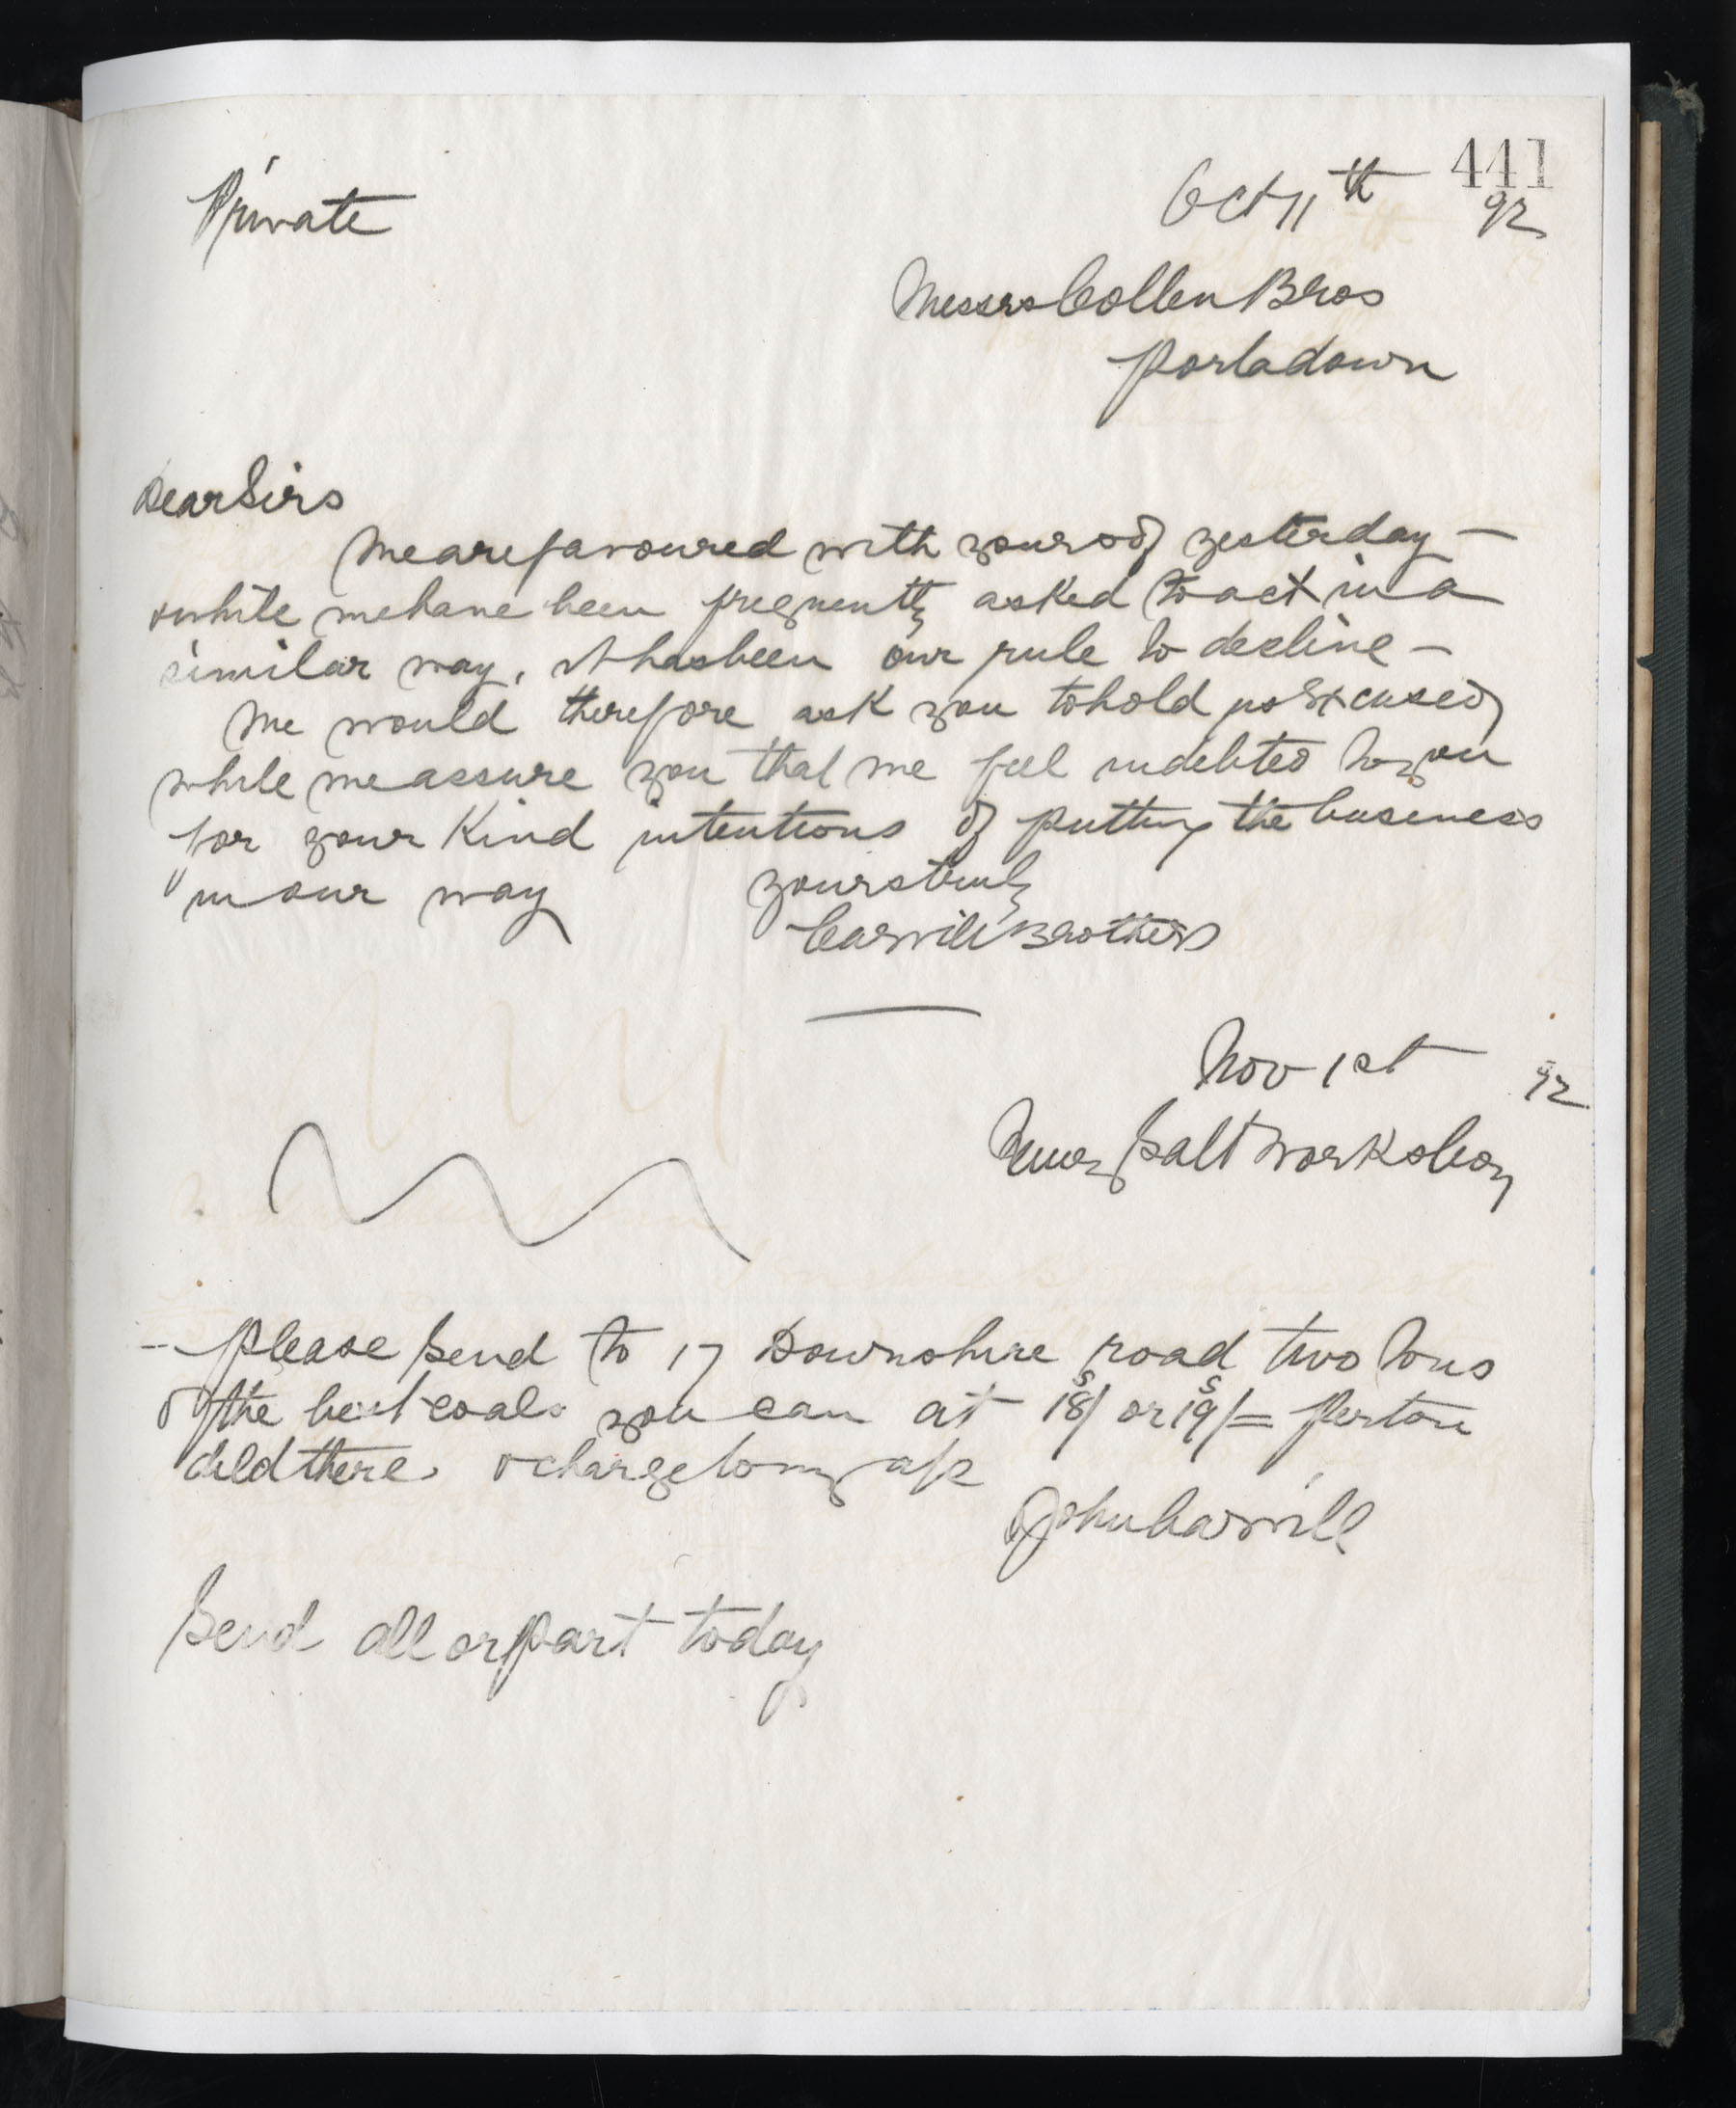 441
Private
Oct 11th 92
Messrs Collen Bros
Portadown
Dear Sirs
We are favoured with yours of yesterday —
& while we have been frequently asked to act in a
similar way, it has been our rule to decline —
We would therefore ask you to hold us excused
while we assure you that we feel indebted to you
for your kind intentions of putting the business
in our way
Yours truly
Carvill Brothers
Nov 1st 92
Newry Salt Works Coy
Please send to 17 Downshire road two tons
of the best coals you can at 18s/ or 19s/= per ton
deld there & charge to my a/c
John Carvill
Send all or part today